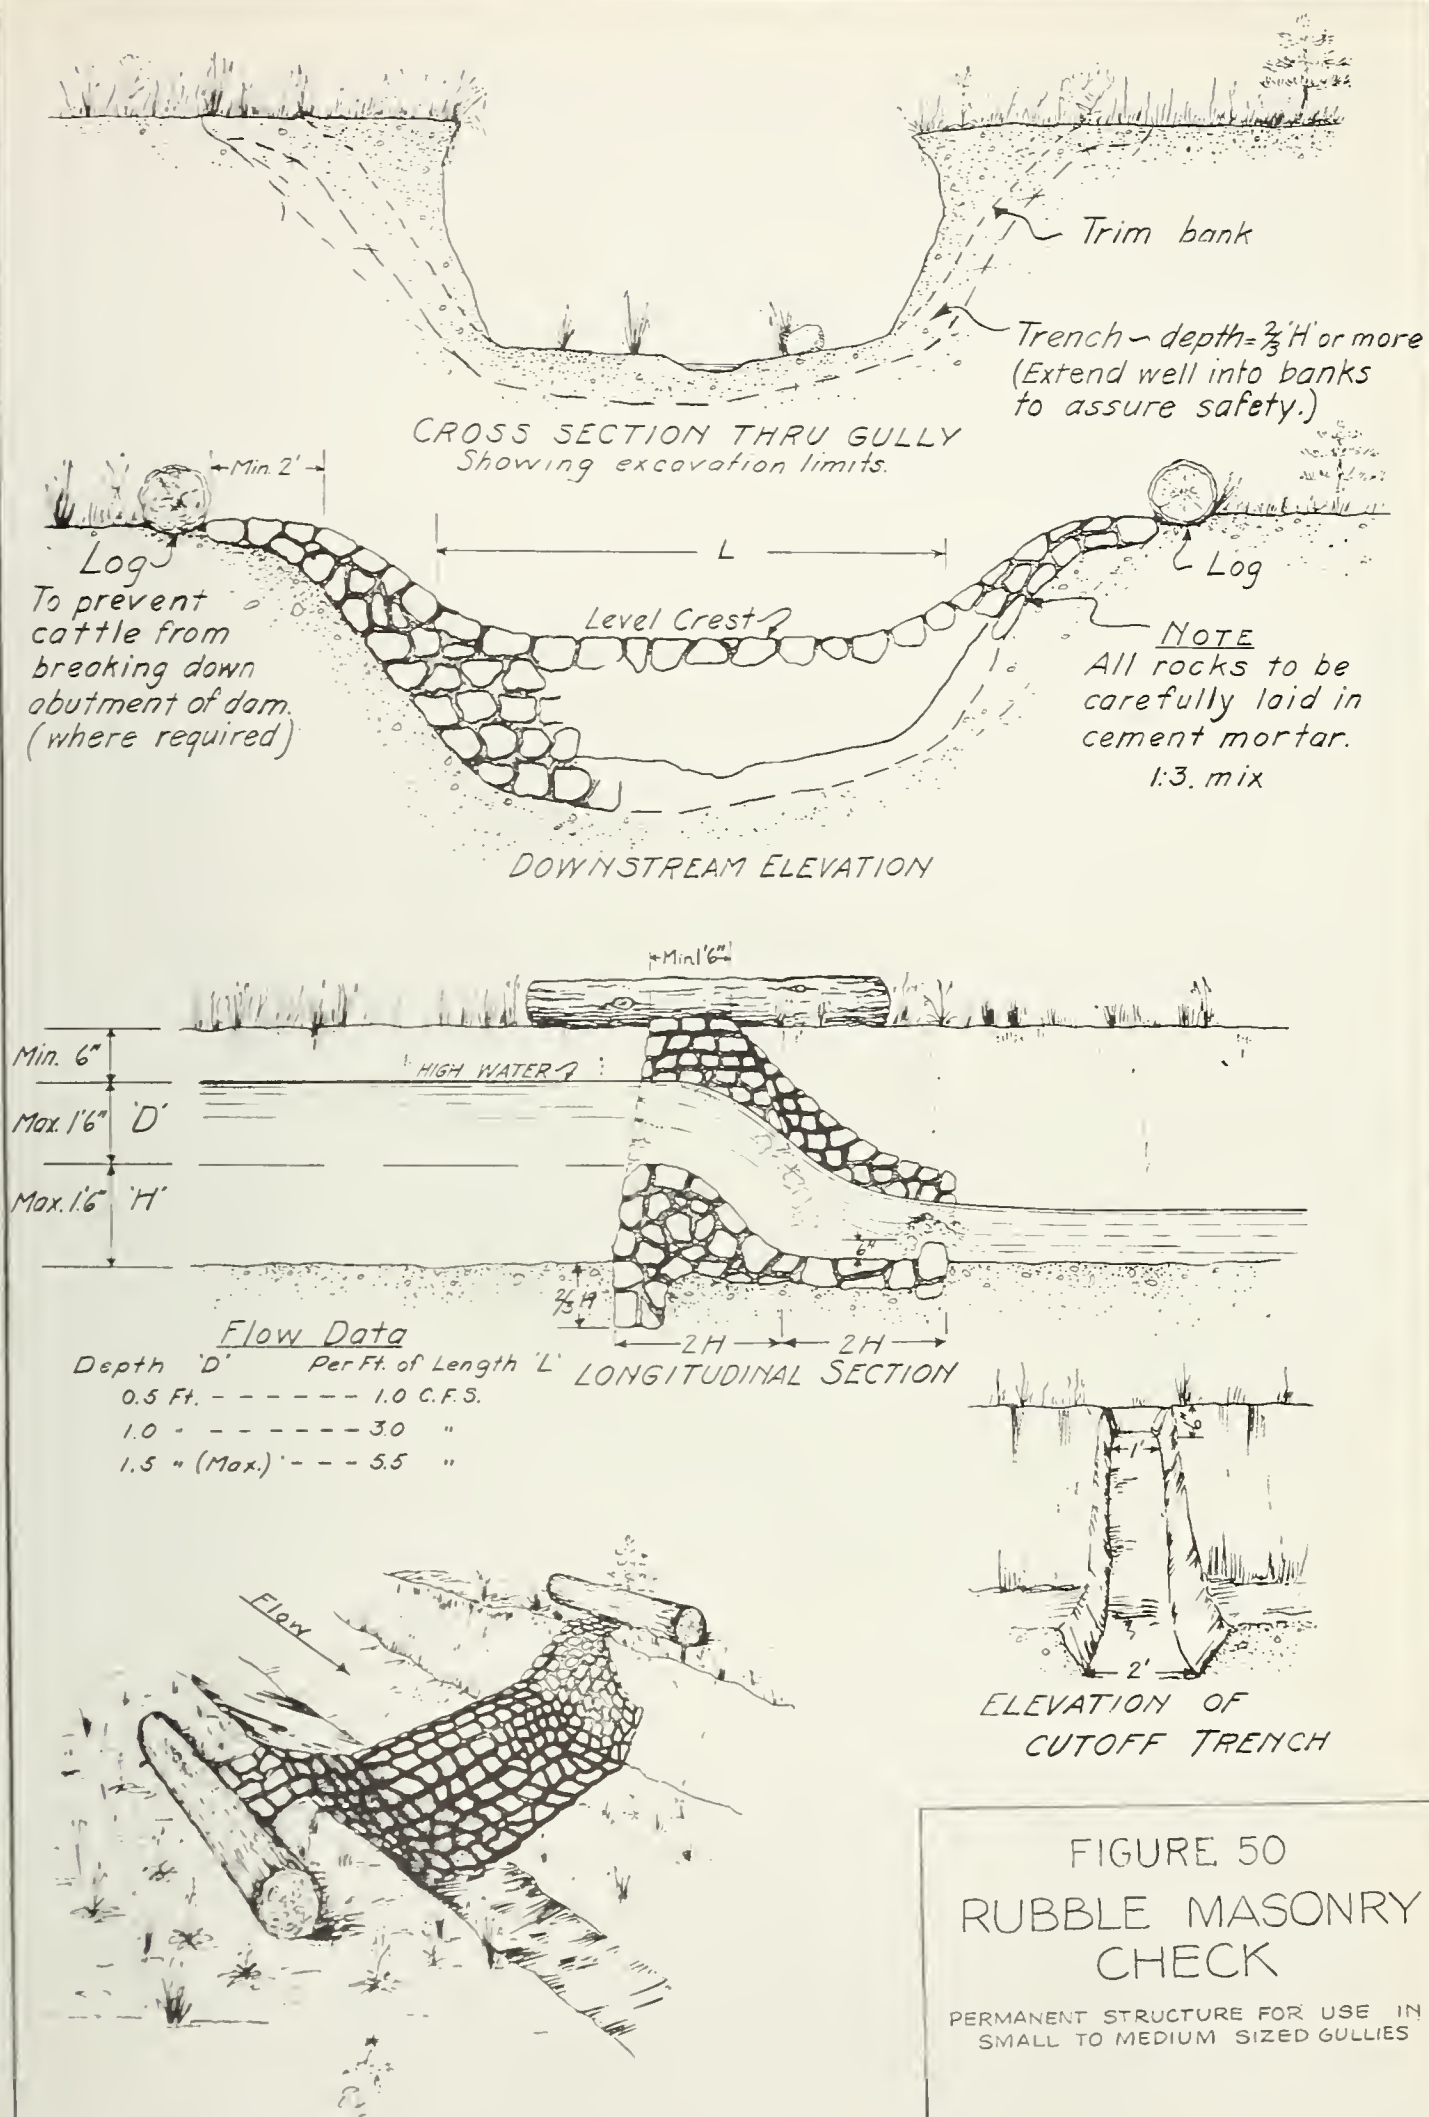 Trim bank
Trench - depth = ⅔ 'H' or more
(Extend well into banks
to assure safety.)
CROSS SECTION THRU GULLY
Showing excavation limits.
Min. 2'
L
Log
To prevent
cattle from
breaking down
abutment of dam.
(where required)
Level Crest
Log
NOTE
All rocks to be
carefully laid in
cement mortar.
1:3. mix
DOWNSTREAM ELEVATION
Min 1'6"
Min. 6"
HIGH WATER
Max. 1'6" 'D'
Max. 1'6" 'H'
6"
⅔ H
2H 2H
LONGITUDINAL SECTION
Flow Data
Depth 'D' Per Ft. of Length 'L'
0.5 Ft. - - - - - - 1.0 C.F.S.
1.0 " - - - - - - - 3.0 "
1.5 " (Max.) - - - 5.5 "
6"
1'
2'
ELEVATION OF
CUTOFF TRENCH
Flow
FIGURE 50
RUBBLE MASONRY
CHECK
PERMANENT STRUCTURE FOR USE IN
SMALL TO MEDIUM SIZED GULLIES